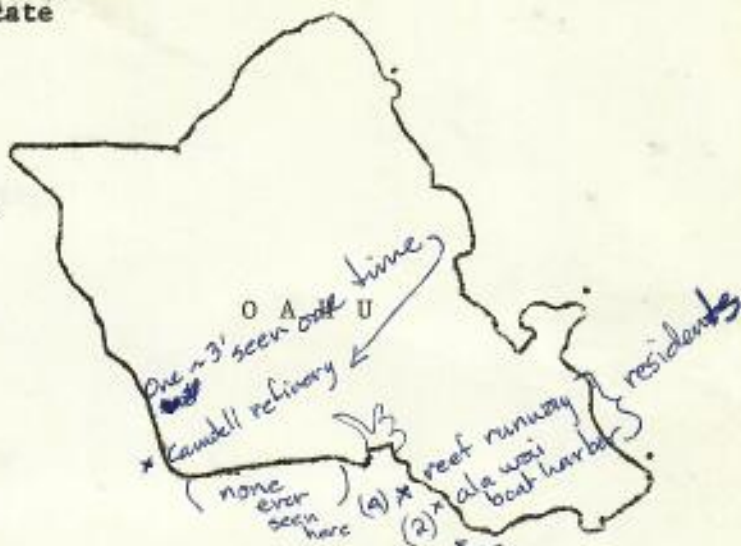 tate
O A H U
One ~ 3' seen one time
* Camdell refinery
(none ever seen here)
(4) * reef runway
(2) * ala wai boat harbor
residents